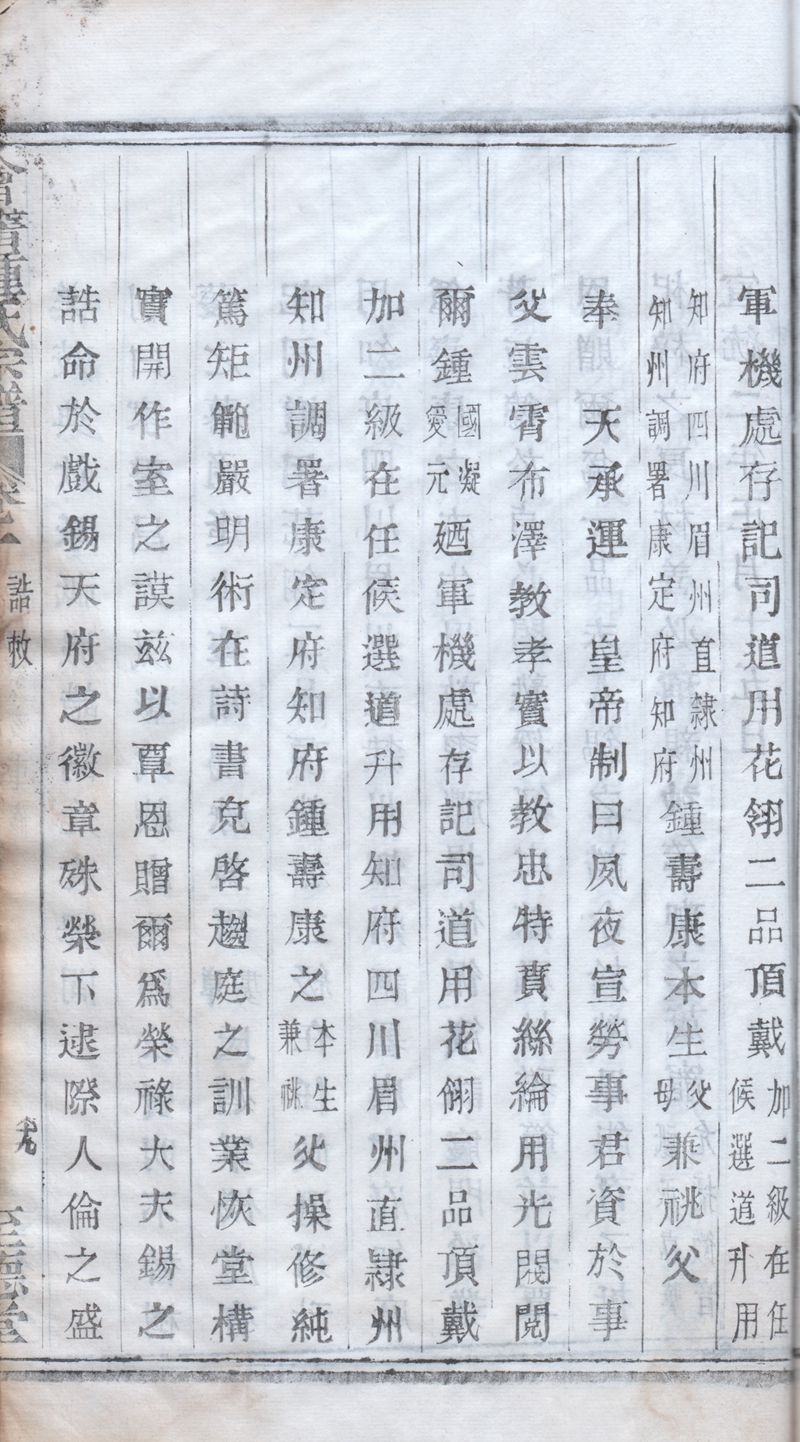 軍機處存記司道用花翎二品頂戴加二級在任候選道升用
知府四川眉州直隸州知州調署康定府知府鍾壽康本生父母兼祧父
奉 天承運 皇帝制曰夙夜宣勞事君資於事
父雲霄布澤教孝實以教忠特賁絲綸用光閥閱
爾鍾國凝愛元廼軍機處存記司道用花翎二品頂戴
加二級在任候選道升用知府四川眉州直隸州
知州調署康定府知府鍾壽康之本生兼祧父操修純
篤矩範嚴明術在詩書克啓趨庭之訓業恢堂構
實開作室之謨兹以覃恩贈爾爲榮祿大夫錫之
誥命於戲錫天府之徽章殊榮下逮際人倫之盛
會稽鍾氏宗譜 卷十 誥敕 至德堂